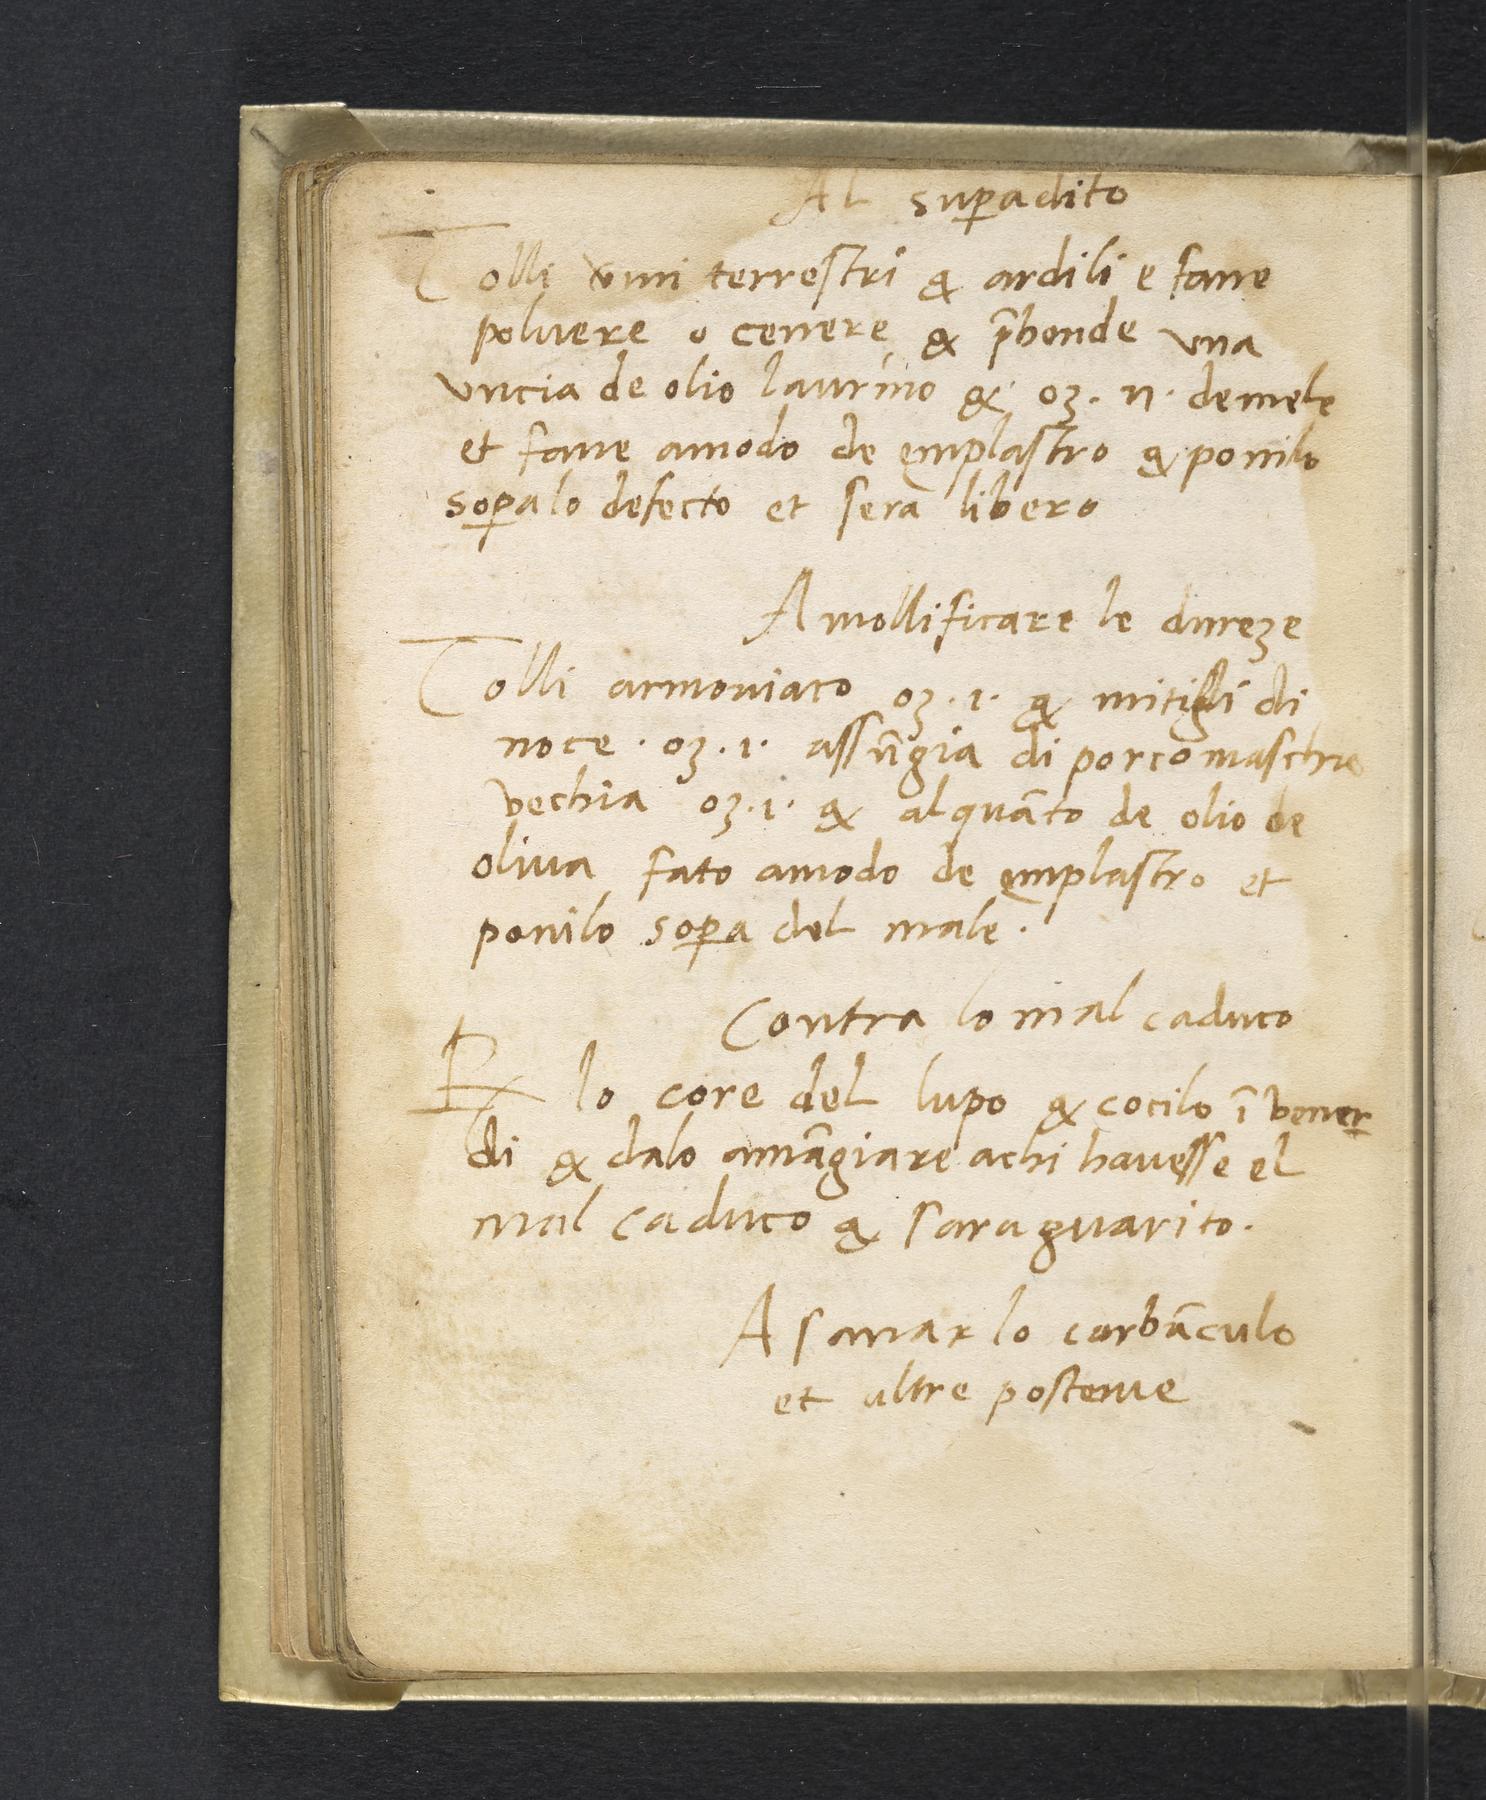 Al sup̱adito
Tolli v̄mi terrestri & ardili e farne
poluere o cenere & p̄hende vna
vncia de olio laurino & oʒ. ii. de mele
et farne amodo de emplastro & ponilo
sop̱alo defecto et sera libero
A mollificare le dureze
Tolli armoniaco oʒ.1. & di
noce. oʒ.1. assūgia di porco maschio
vechia oʒ.1. & alquāto de olio de
oliua fato amodo de emplastro et
ponilo sop̱a del male.
Contra lo mal caduco
℞ lo core del lupo & cocilo ī vener
di & dalo amāgiare achi hauesse el
mal caduco & sara guarito.
A sanar lo carbūculo
et altre posteme